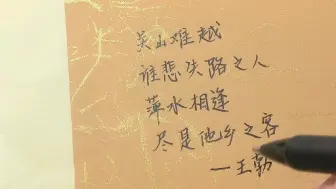 关山难越
谁悲失路之人
萍水相逢
尽是他乡之客
—王勃